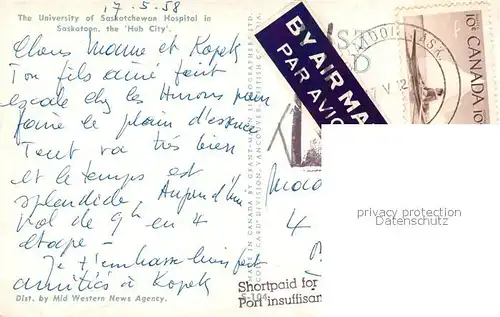 17-5-58
The University of Saskatchewan Hospital in
Saskatoon, the 'Hub City'.
et Kopek
Ton fils aîné fait
escale chez les Hurons pour
faire le plein d'essence
Tout va très bien
et le temps est
splendide. Aujourd'hui
vol de 9h en 4
étapes -
Je t'embrasse bien fort
amitiés à Kopek
Dist. by Mid Western News Agency.
BY AIR MAIL
PAR AVION
SASK.
V 12
10¢
CANADA 10¢
MADE IN CANADA BY GRANT-MANN LITHOGRAPHERS LTD.
POST CARD DIVISION, VANCOUVER
4
S-104
Shortpaid for
Port insuffisan
privacy protection
Datenschutz